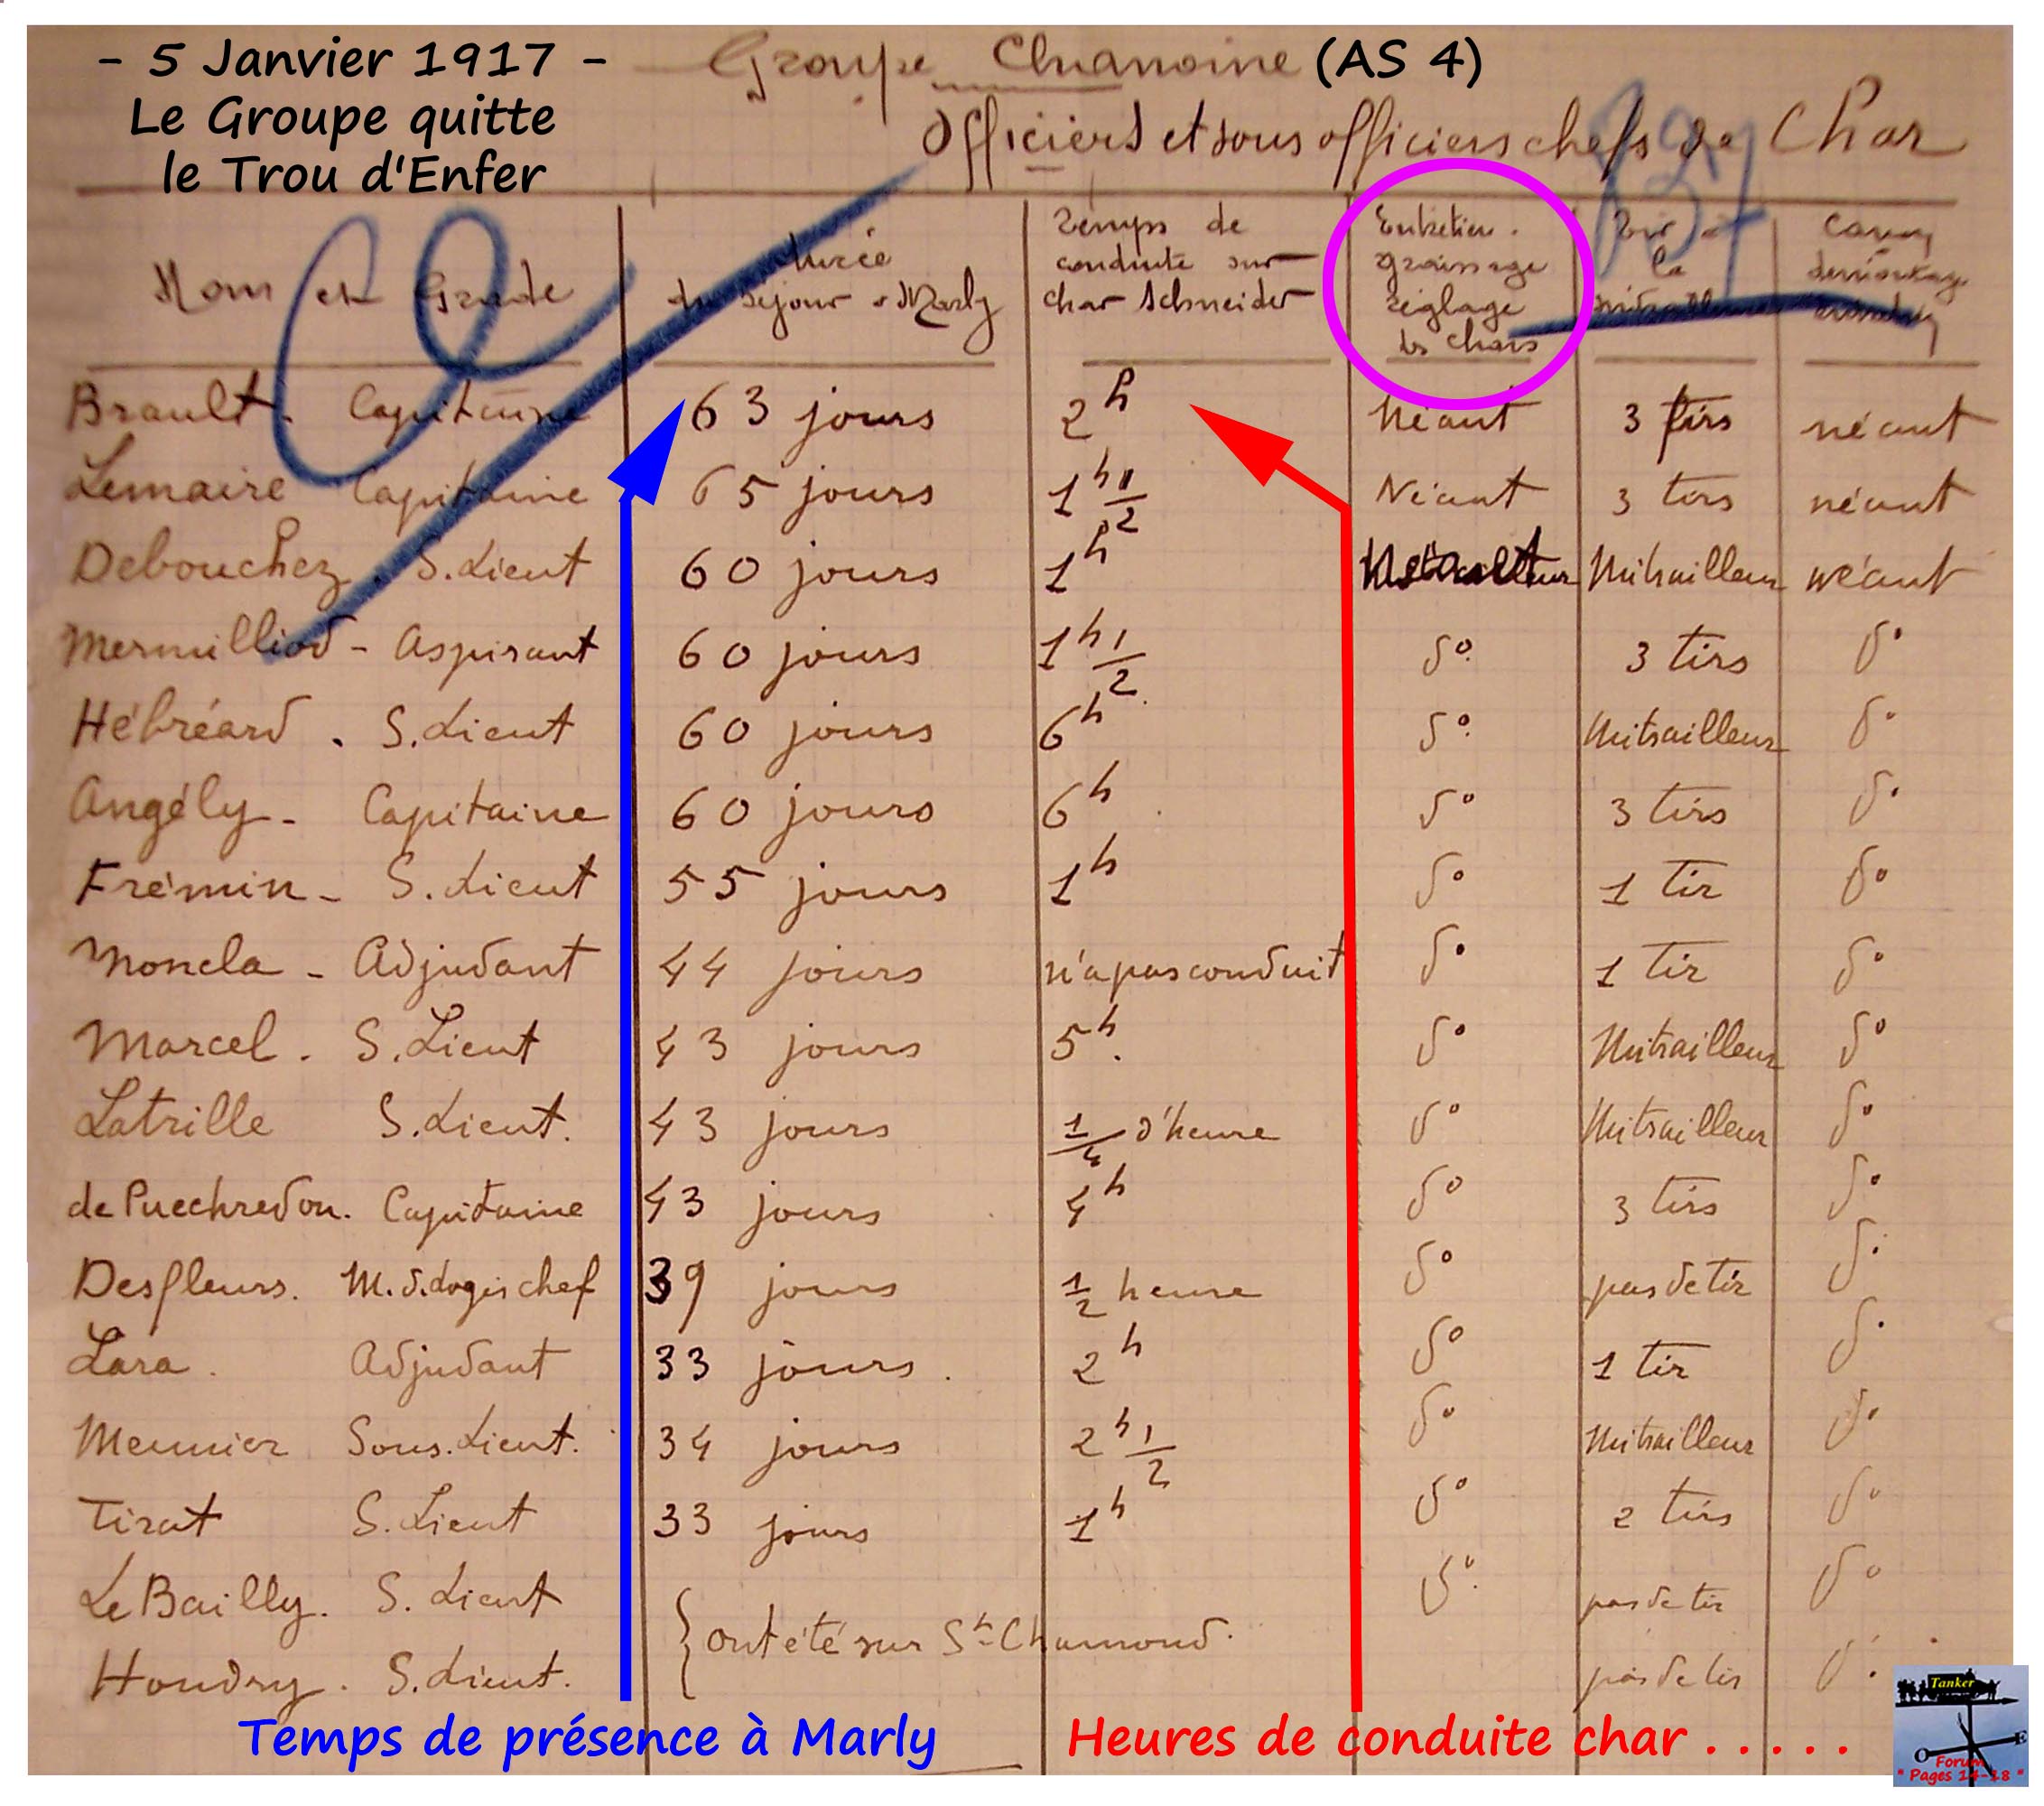 - 5 Janvier 1917 -
Le Groupe quitte
le Trou d'Enfer
Groupe Chanoine (AS 4)
Officiers et sous officiers chefs de Char
Nom et Grade
durée
du séjour à Marly
Temps de
conduite sur
char Schneider
Entretien.
graissage
réglage
des chars
Tir à
la
mitrailleuse
Canon
démontage
Brault. Capitaine 63 jours 2h Néant 3 tirs néant
Lemaire Capitaine 65 jours 1h 1/2 Néant 3 tirs néant
Debouchez. S.Lieut 60 jours 1h Mitrailleur néant
Mermilliod - Aspirant 60 jours 1h 1/2 do 3 tirs do
Hébréard. S.Lieut 60 jours 6h do Mitrailleur do
Angély - Capitaine 60 jours 6h do 3 tirs do
Frémin - S.Lieut 55 jours 1h do 1 tir do
Moncla - Adjudant 44 jours n'a pas conduit do 1 tir do
Marcel. S.Lieut 43 jours 5h. do Mitrailleur do
Latrille S.Lieut. 43 jours 1/4 d'heure do Mitrailleur do
de Puechredon. Capitaine 43 jours 4h do 3 tirs do
Desfleurs. M.d.Logis chef 39 jours 1/2 heure do pas de tir do
Lara. Adjudant 33 jours. 2h do 1 tir do
Meunier Sous.Lieut. 34 jours 2h 1/2 do Mitrailleur do
Tirat S.Lieut 33 jours 1h do 2 tirs do
Le Bailly. S.Lieut do pas de tir do
{ ont été sur St-Chamond.
Houdry. S.Lieut. pas de tir do
Temps de présence à Marly
Heures de conduite char . . . . .
Tanker
O E
Forum
" Pages 14-18 "